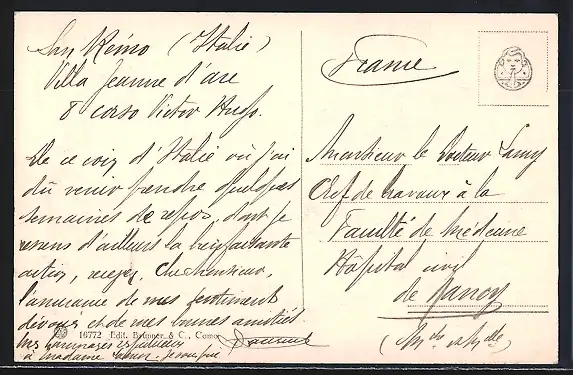 San Remo (Italie)
Villa Jeanne d'arc
8 corso Victor Hugo.
De ce coin d'Italie où j'ai
dû venir prendre quelques
semaines de repos, dont je
ressens d'ailleurs la bienfaisante
action, recevez, Cher Monsieur,
l'assurance de mes sentiments
dévoués et de mes bonnes amitiés
16772 Edit. Brunner & C., Como
mes hommages respectueux
à madame
France
Monsieur le Docteur
Chef de travaux à la
Faculté de Médecine
Hôpital civil
de Nancy
(Mthe et Mlle)